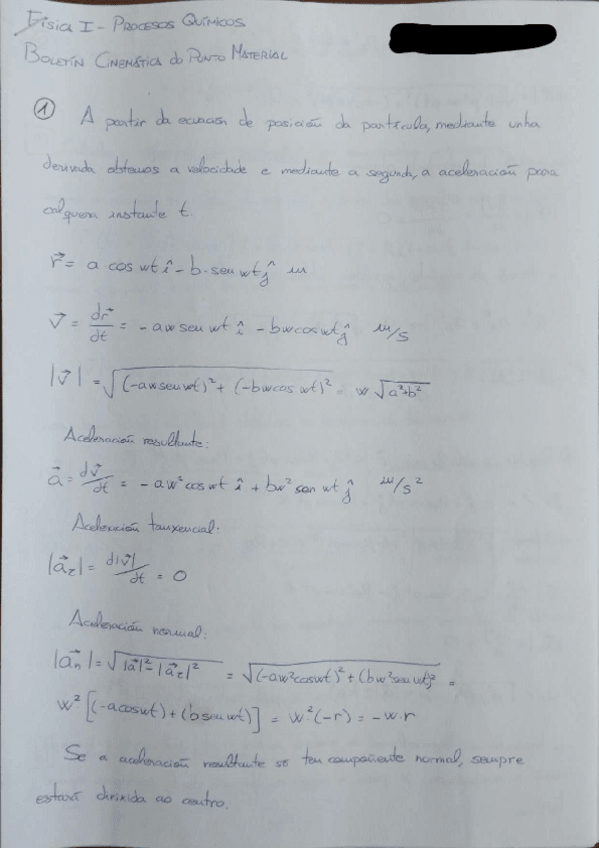 Física I - PROCESOS QUÍMICOS
BOLETÍN CINEMÁTICA do PUNTO MATERIAL
① A partir da ecuación de posición da partícula, mediante unha
derivada obtemos a velocidade e mediante a segunda, a aceleración para
calquera instante t.
r⃗ = a · cos wt î - b · sen wt ĵ m
v⃗ = dr⃗/dt = - aw sen wt î - bw cos wt ĵ m/s
|v⃗| = √((-aw sen wt)² + (-bw cos wt)²) = w √(a²+b²)
Aceleración resultante:
a⃗ = dv⃗/dt = - aw² cos wt î + bw² sen wt ĵ m/s²
Aceleración tanxencial:
|a⃗τ| = d|v⃗|/dt = 0
Aceleración normal:
|a⃗n| = √(|a⃗|² - |a⃗τ|²) = √((-aw² cos wt)² + (bw² sen wt)²) =
w² [(-a cos wt) + (b sen wt)] = w² · (-r) = - w · r
Se a aceleración resultante só ten compoñente normal, sempre
estará dirixida ao centro.